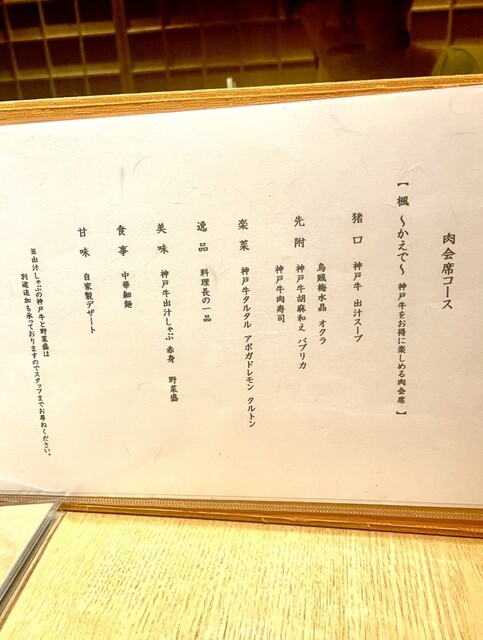 肉会席コース
【 楓 ～かえで～ 神戸牛をお得に楽しめる肉会席 】
猪口 神戸牛 出汁スープ
先附 烏賊梅水晶 オクラ
神戸牛胡麻和え パプリカ
神戸牛肉寿司
楽菜 神戸牛タルタル アボガドレモン クルトン
逸品 料理長の一品
美味 神戸牛出汁しゃぶ 赤身 野菜盛
食事 中華細麺
甘味 自家製デザート
※出汁しゃぶの神戸牛と野菜盛は
別途追加も承っておりますのでスタッフまでお尋ねください。